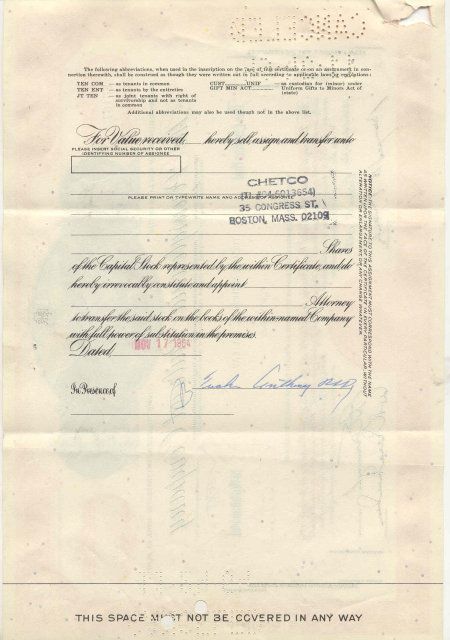 The following abbreviations, when used in the inscription on the face of this certificate or on an assignment in con-
nection therewith, shall be construed as though they were written out in full according to applicable laws or regulations:
TEN COM — as tenants in common
TEN ENT — as tenants by the entireties
JT TEN — as joint tenants with right of
survivorship and not as tenants
in common
CUST. UNIF
GIFT MIN ACT
— as custodian for (minor) under
Uniform Gifts to Minors Act of
(state)
Additional abbreviations may also be used though not in the above list.
For Value received, hereby sell, assign and transfer unto
PLEASE INSERT SOCIAL SECURITY OR OTHER
IDENTIFYING NUMBER OF ASSIGNEE
PLEASE PRINT OR TYPEWRITE NAME AND ADDRESS OF ASSIGNEE
CHETCO
35 CONGRESS ST.
BOSTON, MASS. 02109
Shares
of the Capital Stock represented by the within Certificate, and do
hereby irrevocably constitute and appoint
Attorney
to transfer the said stock on the books of the within-named Company
with full power of substitution in the premises.
Dated, NOV 17 1964
In Presence of
NOTICE: THE SIGNATURE TO THIS ASSIGNMENT MUST CORRESPOND WITH THE NAME
AS WRITTEN UPON THE FACE OF THE CERTIFICATE IN EVERY PARTICULAR, WITHOUT
ALTERATION OR ENLARGEMENT OR ANY CHANGE WHATEVER.
THIS SPACE MUST NOT BE COVERED IN ANY WAY